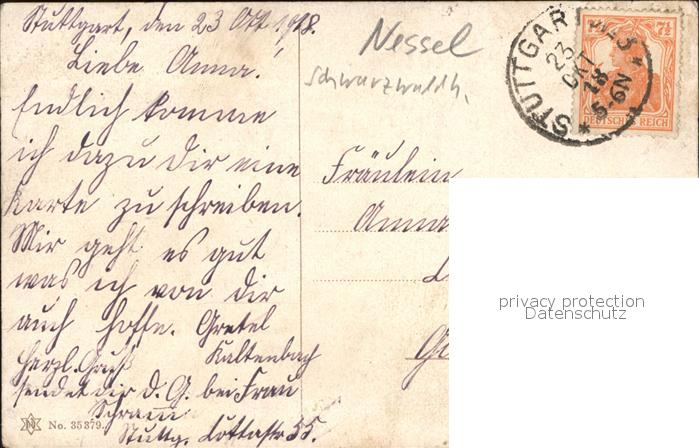 Stuttgart, den 23 Okt. 1918.
Liebe Anna!
Endlich komme
ich dazu dir eine
Karte zu schreiben.
Mir geht es gut
was ich von dir
auch hoffe. Gretel
Kaltenbach
herzl. Gruß
sendet dir d. G. bei Frau
Schramm
Stuttg. Lottastr 55.
No. 35379.
Nessel
Schwarzwaldh.
STUTTGART
23
OKT
18
5-6N
7½
DEUTSCHES REICH
Fräulein
Anna
privacy protection
Datenschutz